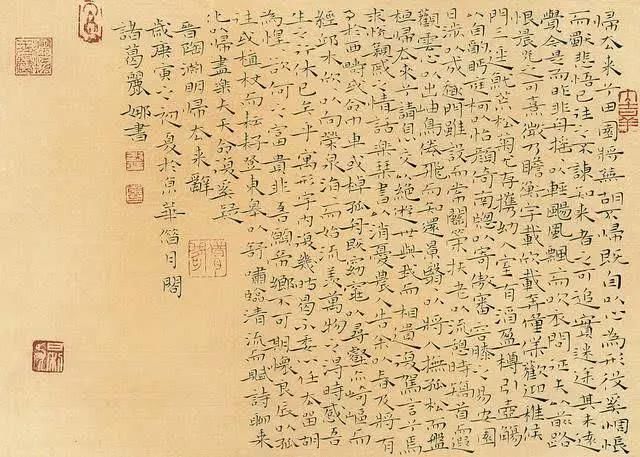 歸去來兮田園將蕪胡不歸既自以心為形役奚惆悵
而獨悲悟已往之不諫知來者之可追實迷途其未遠
覺今是而昨非舟搖以輕颺風飄而吹衣問征夫以前路
恨晨光之熹微乃瞻衡宇載欣載奔僮僕歡迎稚子候
門三逕就荒松菊猶存攜幼入室有酒盈樽引壺觴
以自酌眄庭柯以怡顏倚南牕以寄傲審容膝之易安園
日涉以成趣門雖設而常關策扶老以流憩時矯首而遐
觀雲心以出岫鳥倦飛而知還景翳以將入撫孤松而盤
桓歸去來兮請息交以絕游世與我而相遺復駕言兮焉
求悅親戚之情話樂琴書以消憂農人告余以春及將有
事於西疇或命巾車或棹孤舟既窈窕以尋壑亦崎嶇而
經邱木欣以向榮泉涓而始流羨萬物之得時感吾
生之行休已矣乎寓形宇內復幾時曷不委心任去留胡
為惶欲何之富貴非吾願帝鄉不可期懷良辰以孤
往或植杖而耘耔登東皋以舒嘯臨清流而賦詩聊乘
化以歸盡樂夫天命復奚疑
晉陶淵明歸去來辭
歲庚寅之初夏於京華簷月閣
諸葛麗娜書